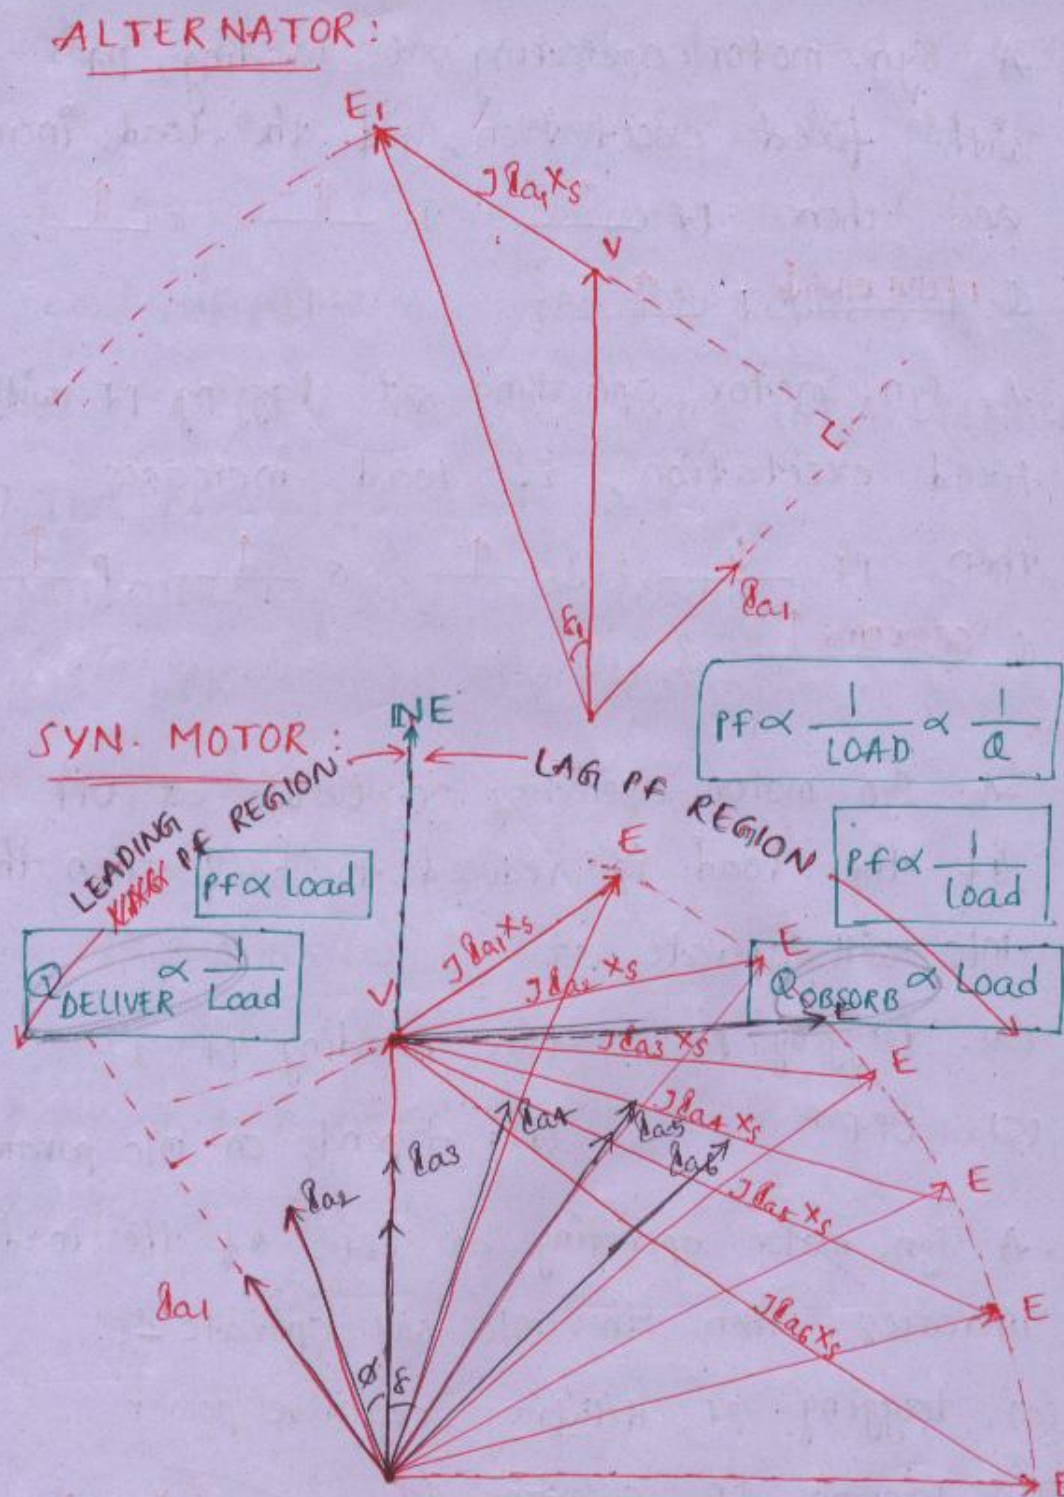 ALTERNATOR:
E1
JIa1Xs
V
δ1
Ia1
SYN. MOTOR:
INE
LEADING PF REGION
LAG PF REGION
Pf ∝ 1/LOAD ∝ 1/Q
Pf ∝ Load
Pf ∝ 1/Load
Q DELIVER ∝ 1/Load
Q OBSORB ∝ Load
E
E
E
E
E
E
V
JIa1Xs
JIa2Xs
JIa3Xs
JIa4Xs
JIa5Xs
JIa6Xs
Ia1
Ia2
Ia3
Ia4
Ia5
Ia6
Ø
δ